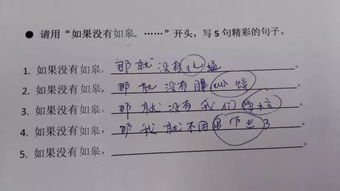 ● 请用“如果没有如皋，……”开头，写5句精彩的句子。
1. 如果没有如皋，那就没有北极。
2. 如果没有如皋，那就没有腊。
3. 如果没有如皋，那就没有我们学校。
4. 如果没有如皋，那我就不用写作业了
5. 如果没有如皋，。